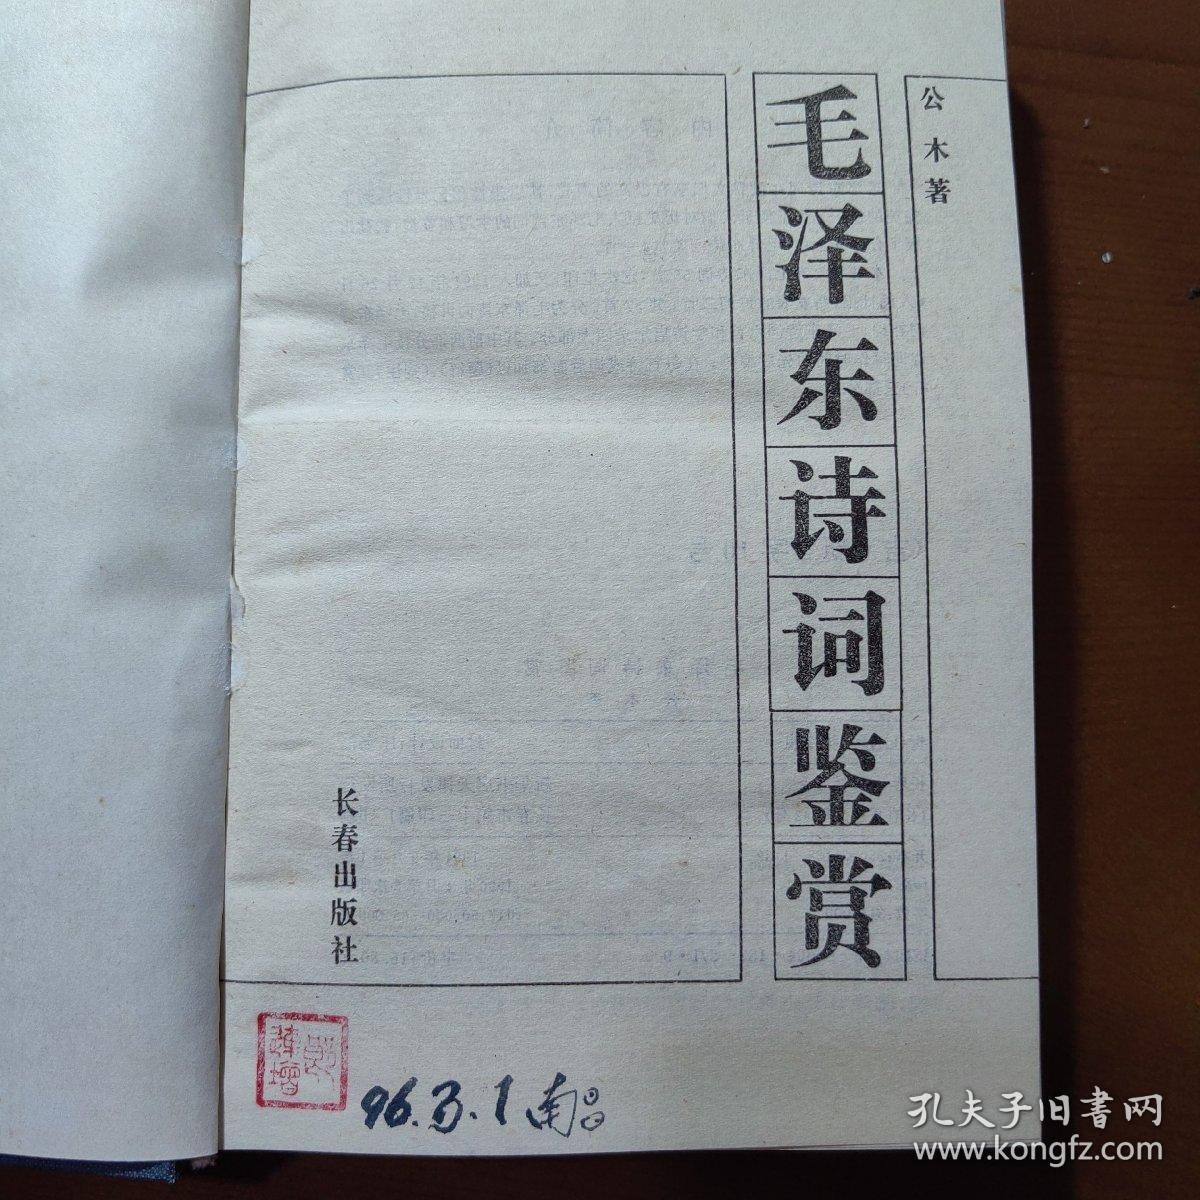 公木著
毛泽东诗词鉴赏
长春出版社
96.3.1 南昌
孔夫子旧书网
www.kongfz.com